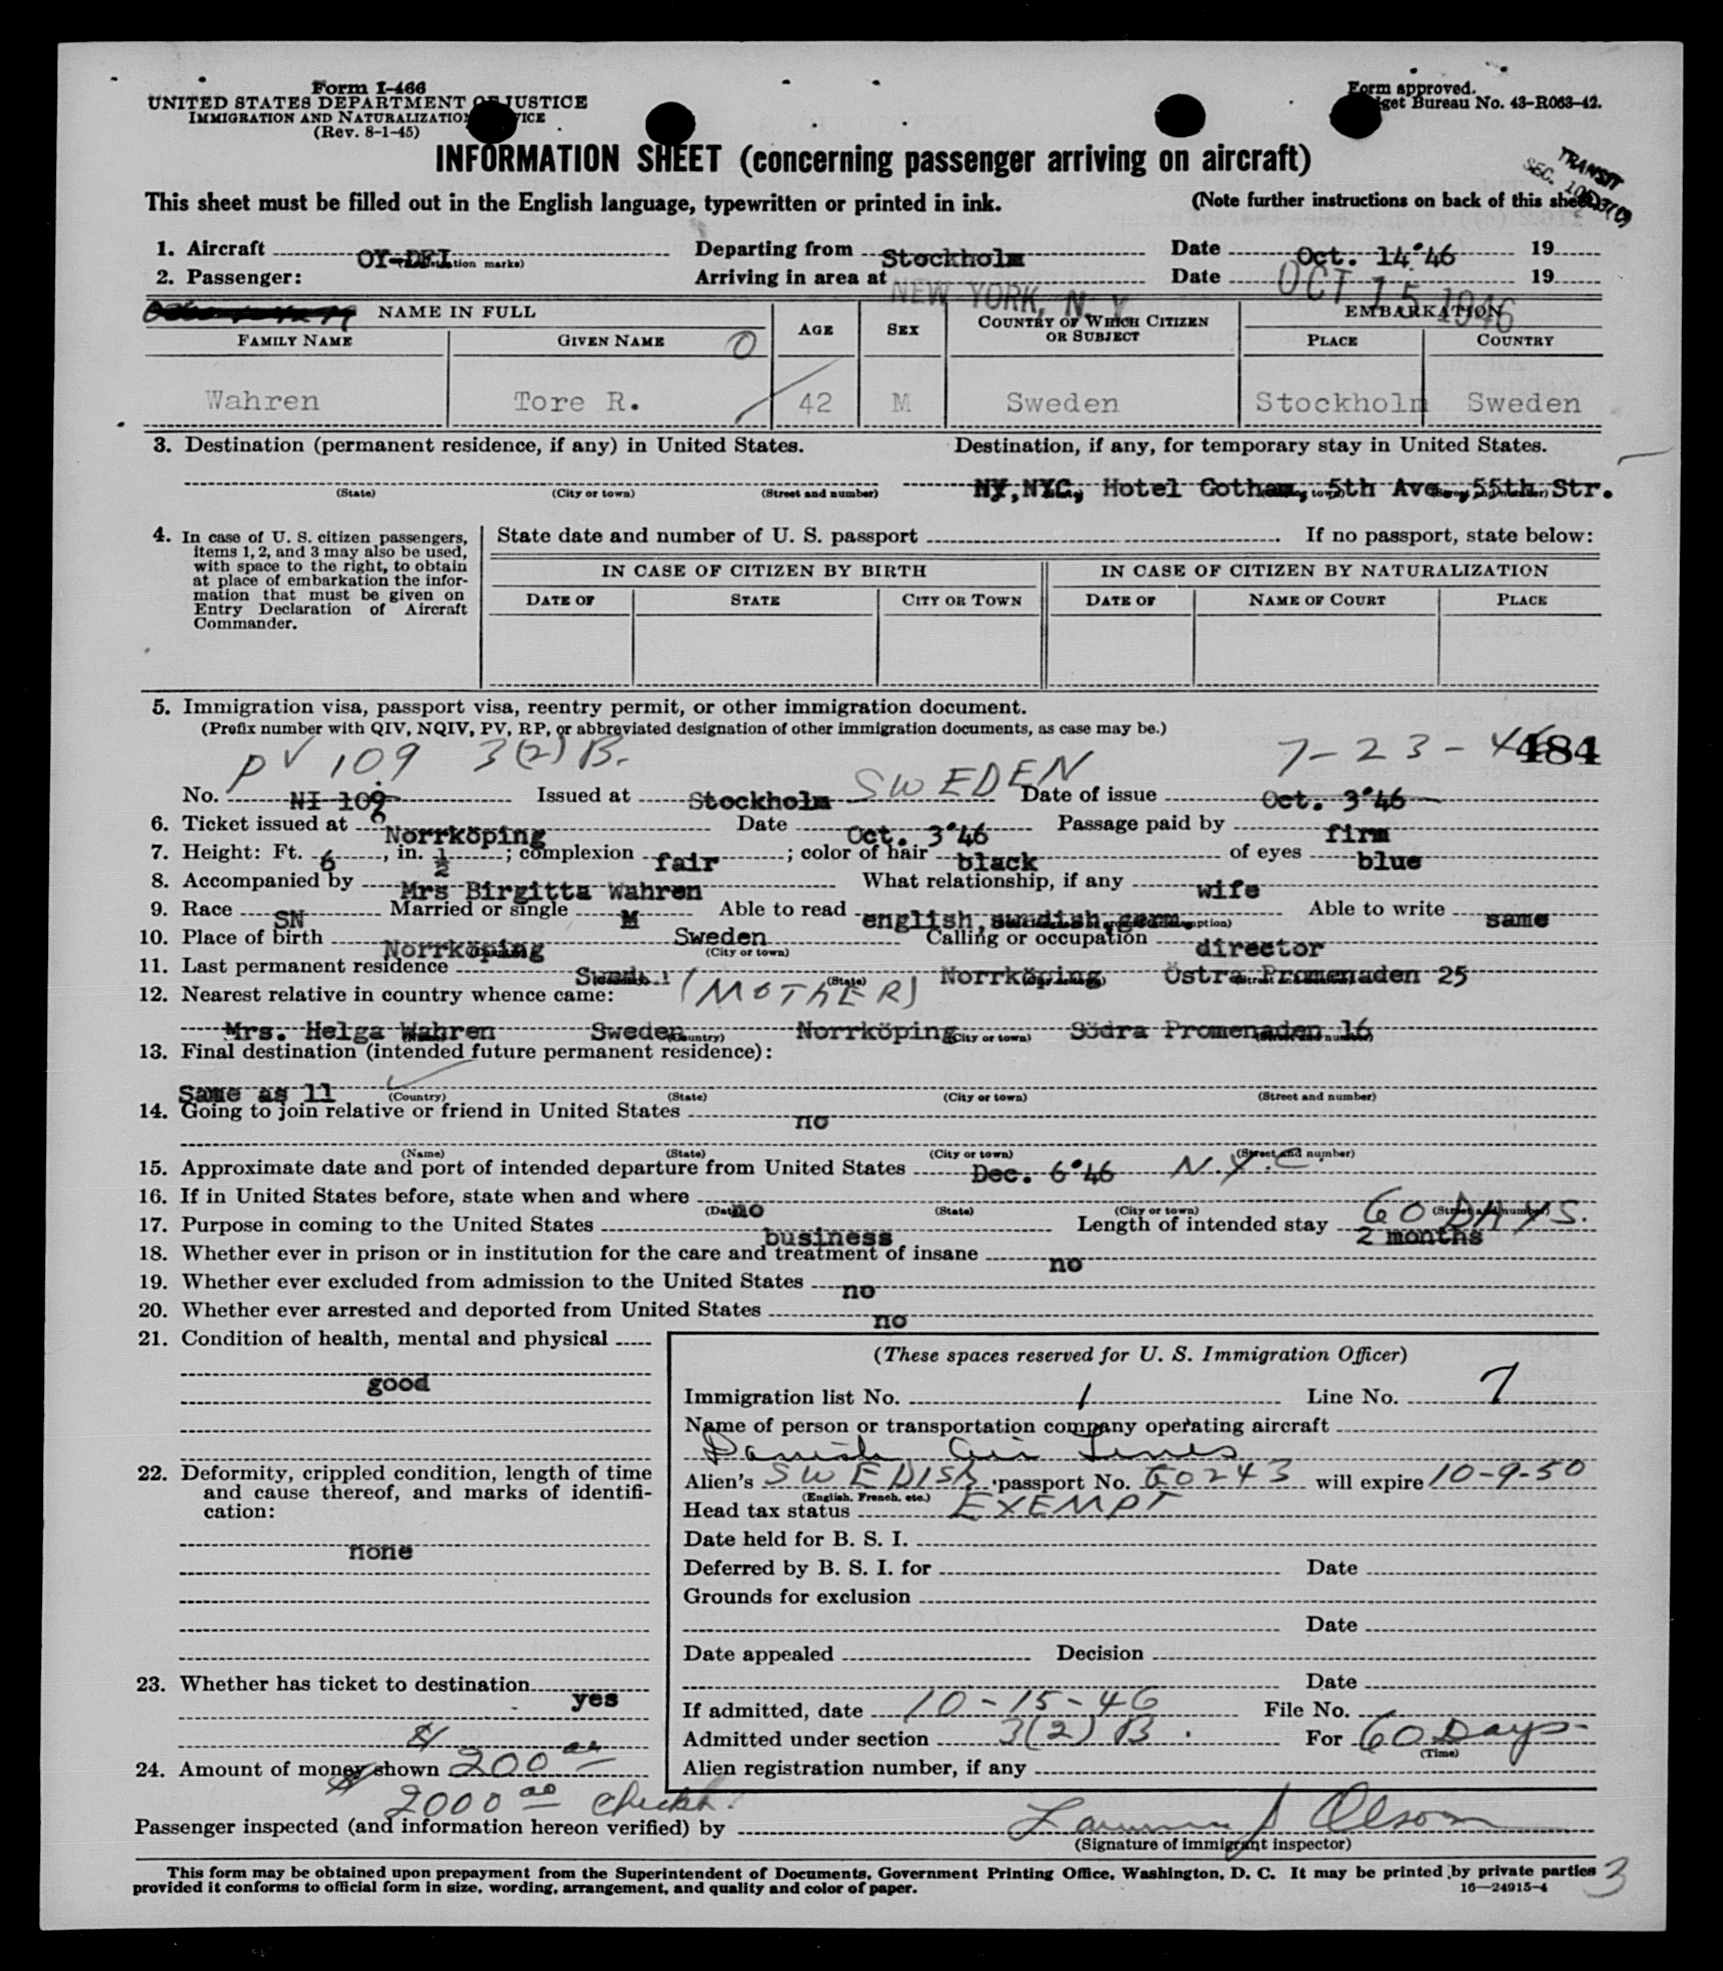 Form I-466
UNITED STATES DEPARTMENT OF JUSTICE
IMMIGRATION AND NATURALIZATION SERVICE
(Rev. 8-1-45)
Form approved.
Budget Bureau No. 43-R063-42.
INFORMATION SHEET (concerning passenger arriving on aircraft)
TRANSIT
SEC. 105.3(C)
This sheet must be filled out in the English language, typewritten or printed in ink. (Note further instructions on back of this sheet.)
1. Aircraft OY-DFI Departing from Stockholm Date Oct. 14°46 19
2. Passenger: Arriving in area at NEW YORK, N.Y. Date OCT 15 1946 19
NAME IN FULL AGE SEX COUNTRY OF WHICH CITIZEN OR SUBJECT EMBARKATION
FAMILY NAME GIVEN NAME 0 PLACE COUNTRY
Wahren Tore R. 42 M Sweden Stockholm Sweden
3. Destination (permanent residence, if any) in United States. Destination, if any, for temporary stay in United States.
NY,NYC, Hotel Gotham, 5th Ave.,55th Str.
(State) (City or town) (Street and number)
4. In case of U. S. citizen passengers, items 1, 2, and 3 may also be used, with space to the right, to obtain at place of embarkation the information that must be given on Entry Declaration of Aircraft Commander.
State date and number of U. S. passport If no passport, state below:
IN CASE OF CITIZEN BY BIRTH IN CASE OF CITIZEN BY NATURALIZATION
DATE OF STATE CITY OR TOWN DATE OF NAME OF COURT PLACE
5. Immigration visa, passport visa, reentry permit, or other immigration document.
(Prefix number with QIV, NQIV, PV, RP, or abbreviated designation of other immigration documents, as case may be.)
PV 109 3(2) B. SWEDEN 7-23-46 484
No. NI 109 Issued at Stockholm Date of issue Oct. 3°46
6. Ticket issued at Norrköping Date Oct. 3°46 Passage paid by firm
7. Height: Ft. 6, in. ½; complexion fair; color of hair black of eyes blue
8. Accompanied by Mrs Birgitta Wahren What relationship, if any wife
9. Race SN Married or single M Able to read english,swedish,germ. Able to write same
10. Place of birth Norrköping Sweden (City or town) Calling or occupation director
11. Last permanent residence Swed. Norrköping, Östra Promenaden 25
12. Nearest relative in country whence came: (MOTHER)
Mrs. Helga Wahren Sweden Norrköping Södra Promenaden 16
(Country) (City or town) (Street and number)
13. Final destination (intended future permanent residence):
Same as 11 (Country) (State) (City or town) (Street and number)
14. Going to join relative or friend in United States no
(Name) (State) (City or town) (Street and number)
15. Approximate date and port of intended departure from United States Dec. 6°46 N.Y.C.
16. If in United States before, state when and where no
(Date) (State) (City or town) (Street and number)
17. Purpose in coming to the United States business Length of intended stay 60 DAYS. 2 months
18. Whether ever in prison or in institution for the care and treatment of insane no
19. Whether ever excluded from admission to the United States no
20. Whether ever arrested and deported from United States no
21. Condition of health, mental and physical
good
22. Deformity, crippled condition, length of time and cause thereof, and marks of identification:
none
23. Whether has ticket to destination yes
24. Amount of money shown $ 200 00
$ 2000 00 checks.
(These spaces reserved for U. S. Immigration Officer)
Immigration list No. 1 Line No. 7
Name of person or transportation company operating aircraft
Danish Air Lines
Alien's SWEDISH passport No. 60243 will expire 10-9-50
(English, French, etc.)
Head tax status EXEMPT
Date held for B. S. I.
Deferred by B. S. I. for Date
Grounds for exclusion
Date
Date appealed Decision
Date
If admitted, date 10-15-46 File No.
Admitted under section 3(2) B. For 60 Days
(Time)
Alien registration number, if any
Passenger inspected (and information hereon verified) by Olson
(Signature of immigrant inspector)
This form may be obtained upon prepayment from the Superintendent of Documents, Government Printing Office, Washington, D. C. It may be printed by private parties
provided it conforms to official form in size, wording, arrangement, and quality and color of paper. 16—24915-4
3